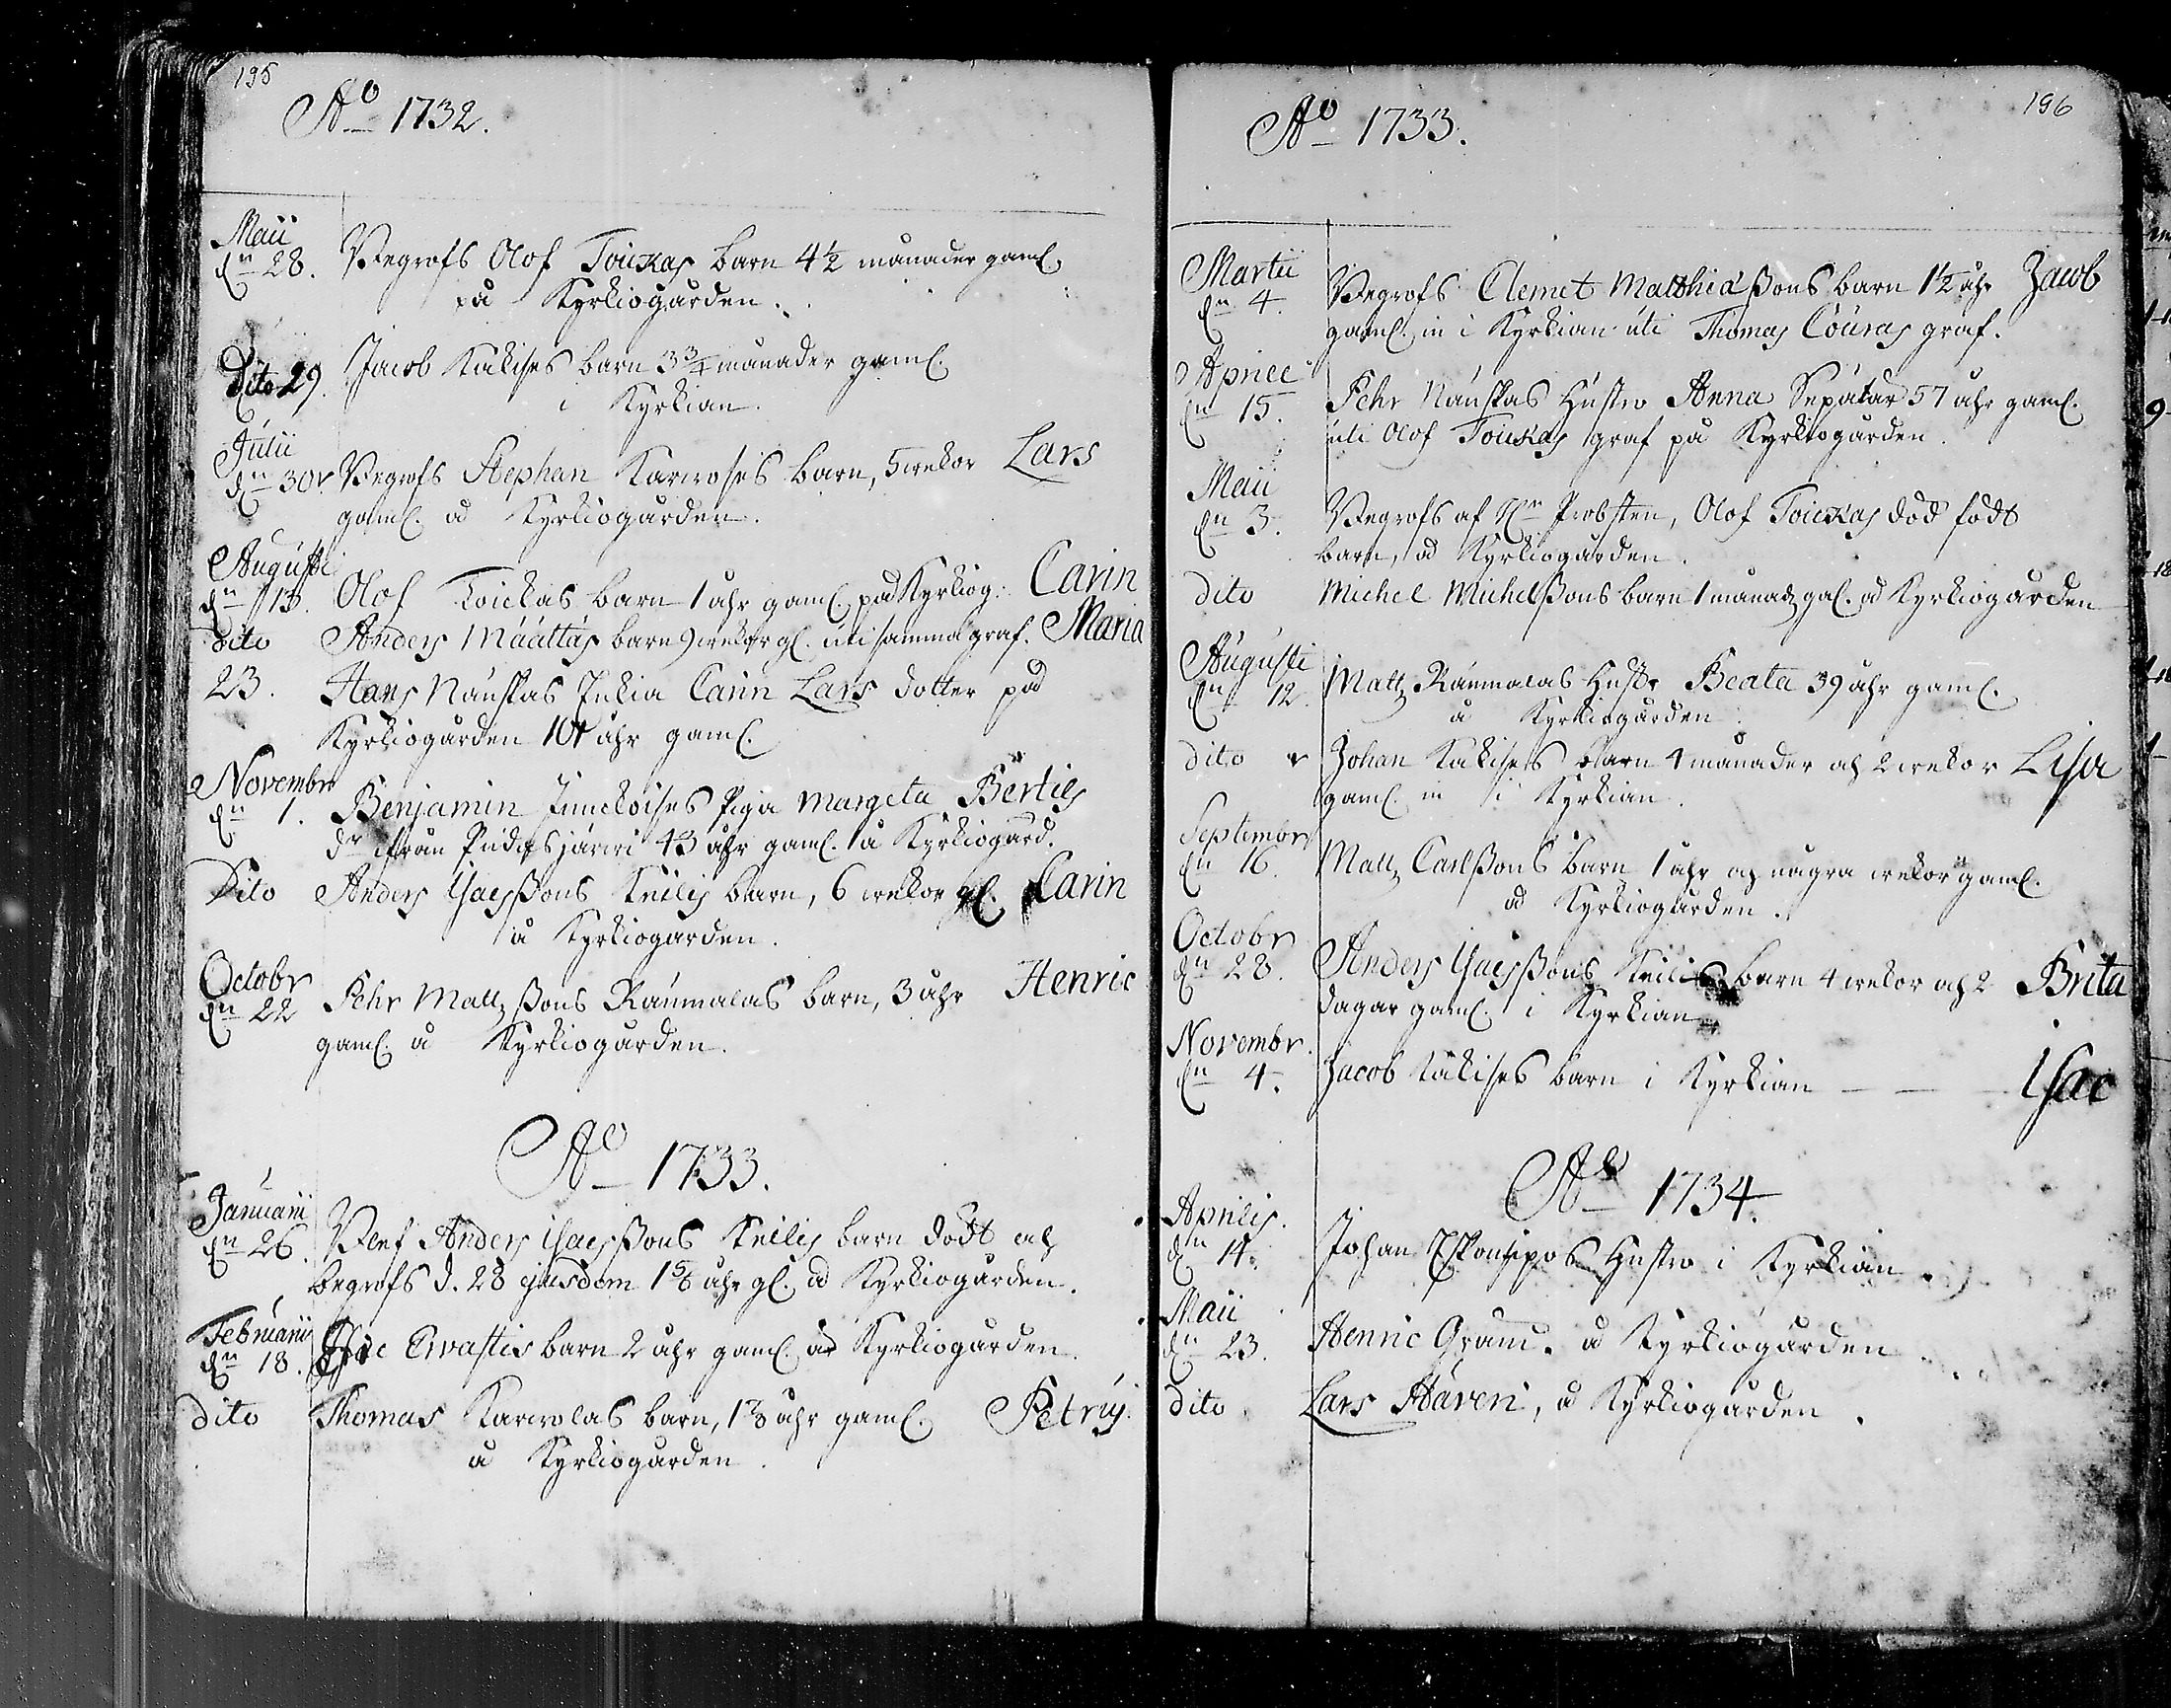 195
Aº 1732.
Maii
dn 28. Begrofs Olof Toickas barn 4½ månader gaml.
på Kyrkiogården.
Dito 29. Jacob Kukises barn 3¾ månader gaml.
i Kyrkian.
Julii
dn 30. Begrofs Stephan Karwoses barn, 5 wekor Lars
gaml. å Kyrkiogården.
Augusti
dn 13. Olof Toickas barn 1 åhr gaml. på Kyrkiog: Carin
dito Anders Määttäs barn 9 wekor gl. uti samma graf. Maria
23. Hans Nauskas Enkia Carin Lars dotter på
Kyrkiogården 101 åhr gaml.
Novembr
dn 1. Benjamin Piga Margeta Bertils
dr ifrån Pudasjärwi 43 åhr gaml. å Kyrkiogård.
Dito Anders Isacssons Keilis barn, 6 wekor gl. Carin
å Kyrkiogården.
Octobr
dn 22 Pehr Matz sons Raumalas barn, 3 åhr Henric
gaml. å Kyrkiogården.
Aº 1733.
Januarii
dn 26. Blef Anders Isacssons Keilis barn dödt och
begrofs d. 28 ejusdem åhr gl. å Kyrkiogården.
Februarii
dn 18. Isac Ervastis barn 2 åhr gaml. å Kyrkiogården.
dito Thomas Karwolas barn, åhr gaml. Petrus
å Kyrkiogården.
196
Aº 1733.
Martii
dn 4. Begrofs Clemet Matthiæ sons barn 1½ åhr Jacob
gaml. in i Kyrkian uti Thomas Couras graf.
Aprill
dn 15. Pehr Nauskas Hustro Anna Sepätar 57 åhr gaml.
uti Olof Toickas graf på Kyrkiogården.
Maii
dn 3. Begrofs af Hn Probsten, Olof Toickas död födt
barn, å Kyrkiogården.
dito Michel Michelssons barn 1 månadz gal. å Kyrkiogården
Augusti
dn 12. Matz Raumalas Hustr Beata 39 åhr gaml.
å Kyrkiogården.
dito Johan Kukises barn 4 månader och 2 wekor Lisa
gaml. in i Kyrkian.
Septembr
dn 16. Matz Carlssons barn 1 åhr och några wekor gaml.
å Kyrkiogården.
Octobr
dn 28. Anders Isacssons Keilis barn 4 wekor och 2 Brita
dagar gaml. i Kyrkian
Novembr.
dn 4. Jacob Kukises barn i Kyrkian — — — Isac
Aº 1734.
Aprilis.
dn 14. Johan Hustro i Kyrkian.
Maii
dn 23. Henric Gran. å Kyrkiogården
dito Lars Haveri, å Kyrkiogården.